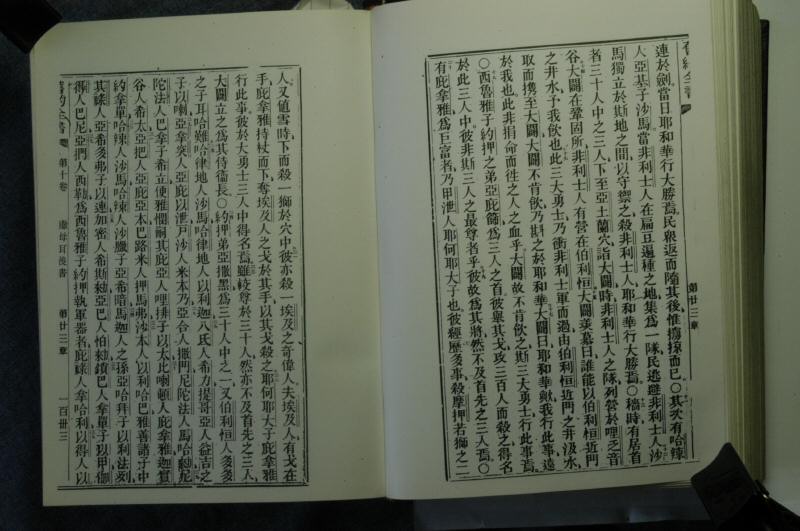 舊約全書
第廿三章
連於劍當日耶和華行大勝焉民衆返而隨其後惟蕩掠而已〇其次有哈辣
人亞基子沙馬當非利士人在扁豆遍種之地集爲一隊民逃避非利士人沙
馬獨立於斯地之間以守禦之殺非利士人耶和華行大勝焉〇穡時有居首
者三十人中之三人下至亞土蘭穴詣大闢時非利士人之隊列營於哩乏音
谷大闢在鞏固所非利士人有營在伯利恒大闢羡慕曰誰能以伯利恒近門
之井水予我飲也此三大勇士乃衝非利士軍而過由伯利恒近門之井汲水
取而攜至大闢大闢不肯飲乃斟之於耶和華大闢曰耶和華歟我行此事遠
於我也此非捐命而徃之人之血乎大闢故不肯飲之斯三大勇士行此事焉
〇西魯雅子約押之弟亞庇篩爲三人之首彼舉其戈攻三百人而殺之得名
於此三人中彼非斯三人之最尊者乎彼故爲其將然不及首先之三人焉〇
有庇拿雅爲巨富者乃甲泄人耶何耶大子也彼經歷多事殺摩押若獅之二
人又值雪時下而殺一獅於穴中彼亦殺一埃及之奇偉人夫埃及人有戈在
手庇拿雅持杖而下奪埃及人之戈於其手以其戈殺之耶何耶大子庇拿雅
行此事彼於大勇士三人中得名焉雖較尊於三十人然亦不及首先之三人
大闢立之爲其侍衞長〇約押弟亞撒黑爲三十人中之一又伯利恒人多多
之子耳哈難哈律地人沙馬哈律地人以利迦八氐人希力提哥亞人益吉之
子以喇亞拿突人亞庇以泄戸沙人米本乃亞合人撒門尼陀法人馬哈勑尼
陀法人巴拿子希立使雅憫嗣其庇亞人哩排子以太比喇頓人庇拿雅迦實
谷人希太亞把人亞庇亞本巴路米人押馬弗沙本人以利哈巴雅善諸子中
約拿單哈辣人沙馬哈辣人沙臘子亞希暗馬迦人之孫亞哈拜子以利法列
其碌人亞希多弗子以連加密人希斯勑亞巴人怕勑鎖巴人拿單子以甲伽
得人巴尼亞捫人西勒爲西魯雅子約押執軍器者庇碌人拿哈利以得人以
舊約全書
第十卷
撒母耳後書
第廿三章
一百卅三